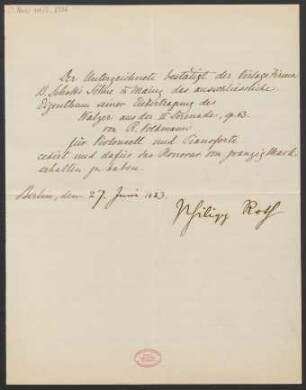 Der Unterzeichnete bestätigt der Verlags-Firma
B. Schott's Söhne in Mainz das ausschliessliche
Eigenthum seiner Uebertragung des
Walzer aus der II Serenade, op. 63.
von R. Volkmann
für Violoncell und Pianoforte
cedirt und dafür das Honorar von zwanzig Mark
erhalten zu haben.
Berlin, den 27. Juni 1883.
Philipp Roth